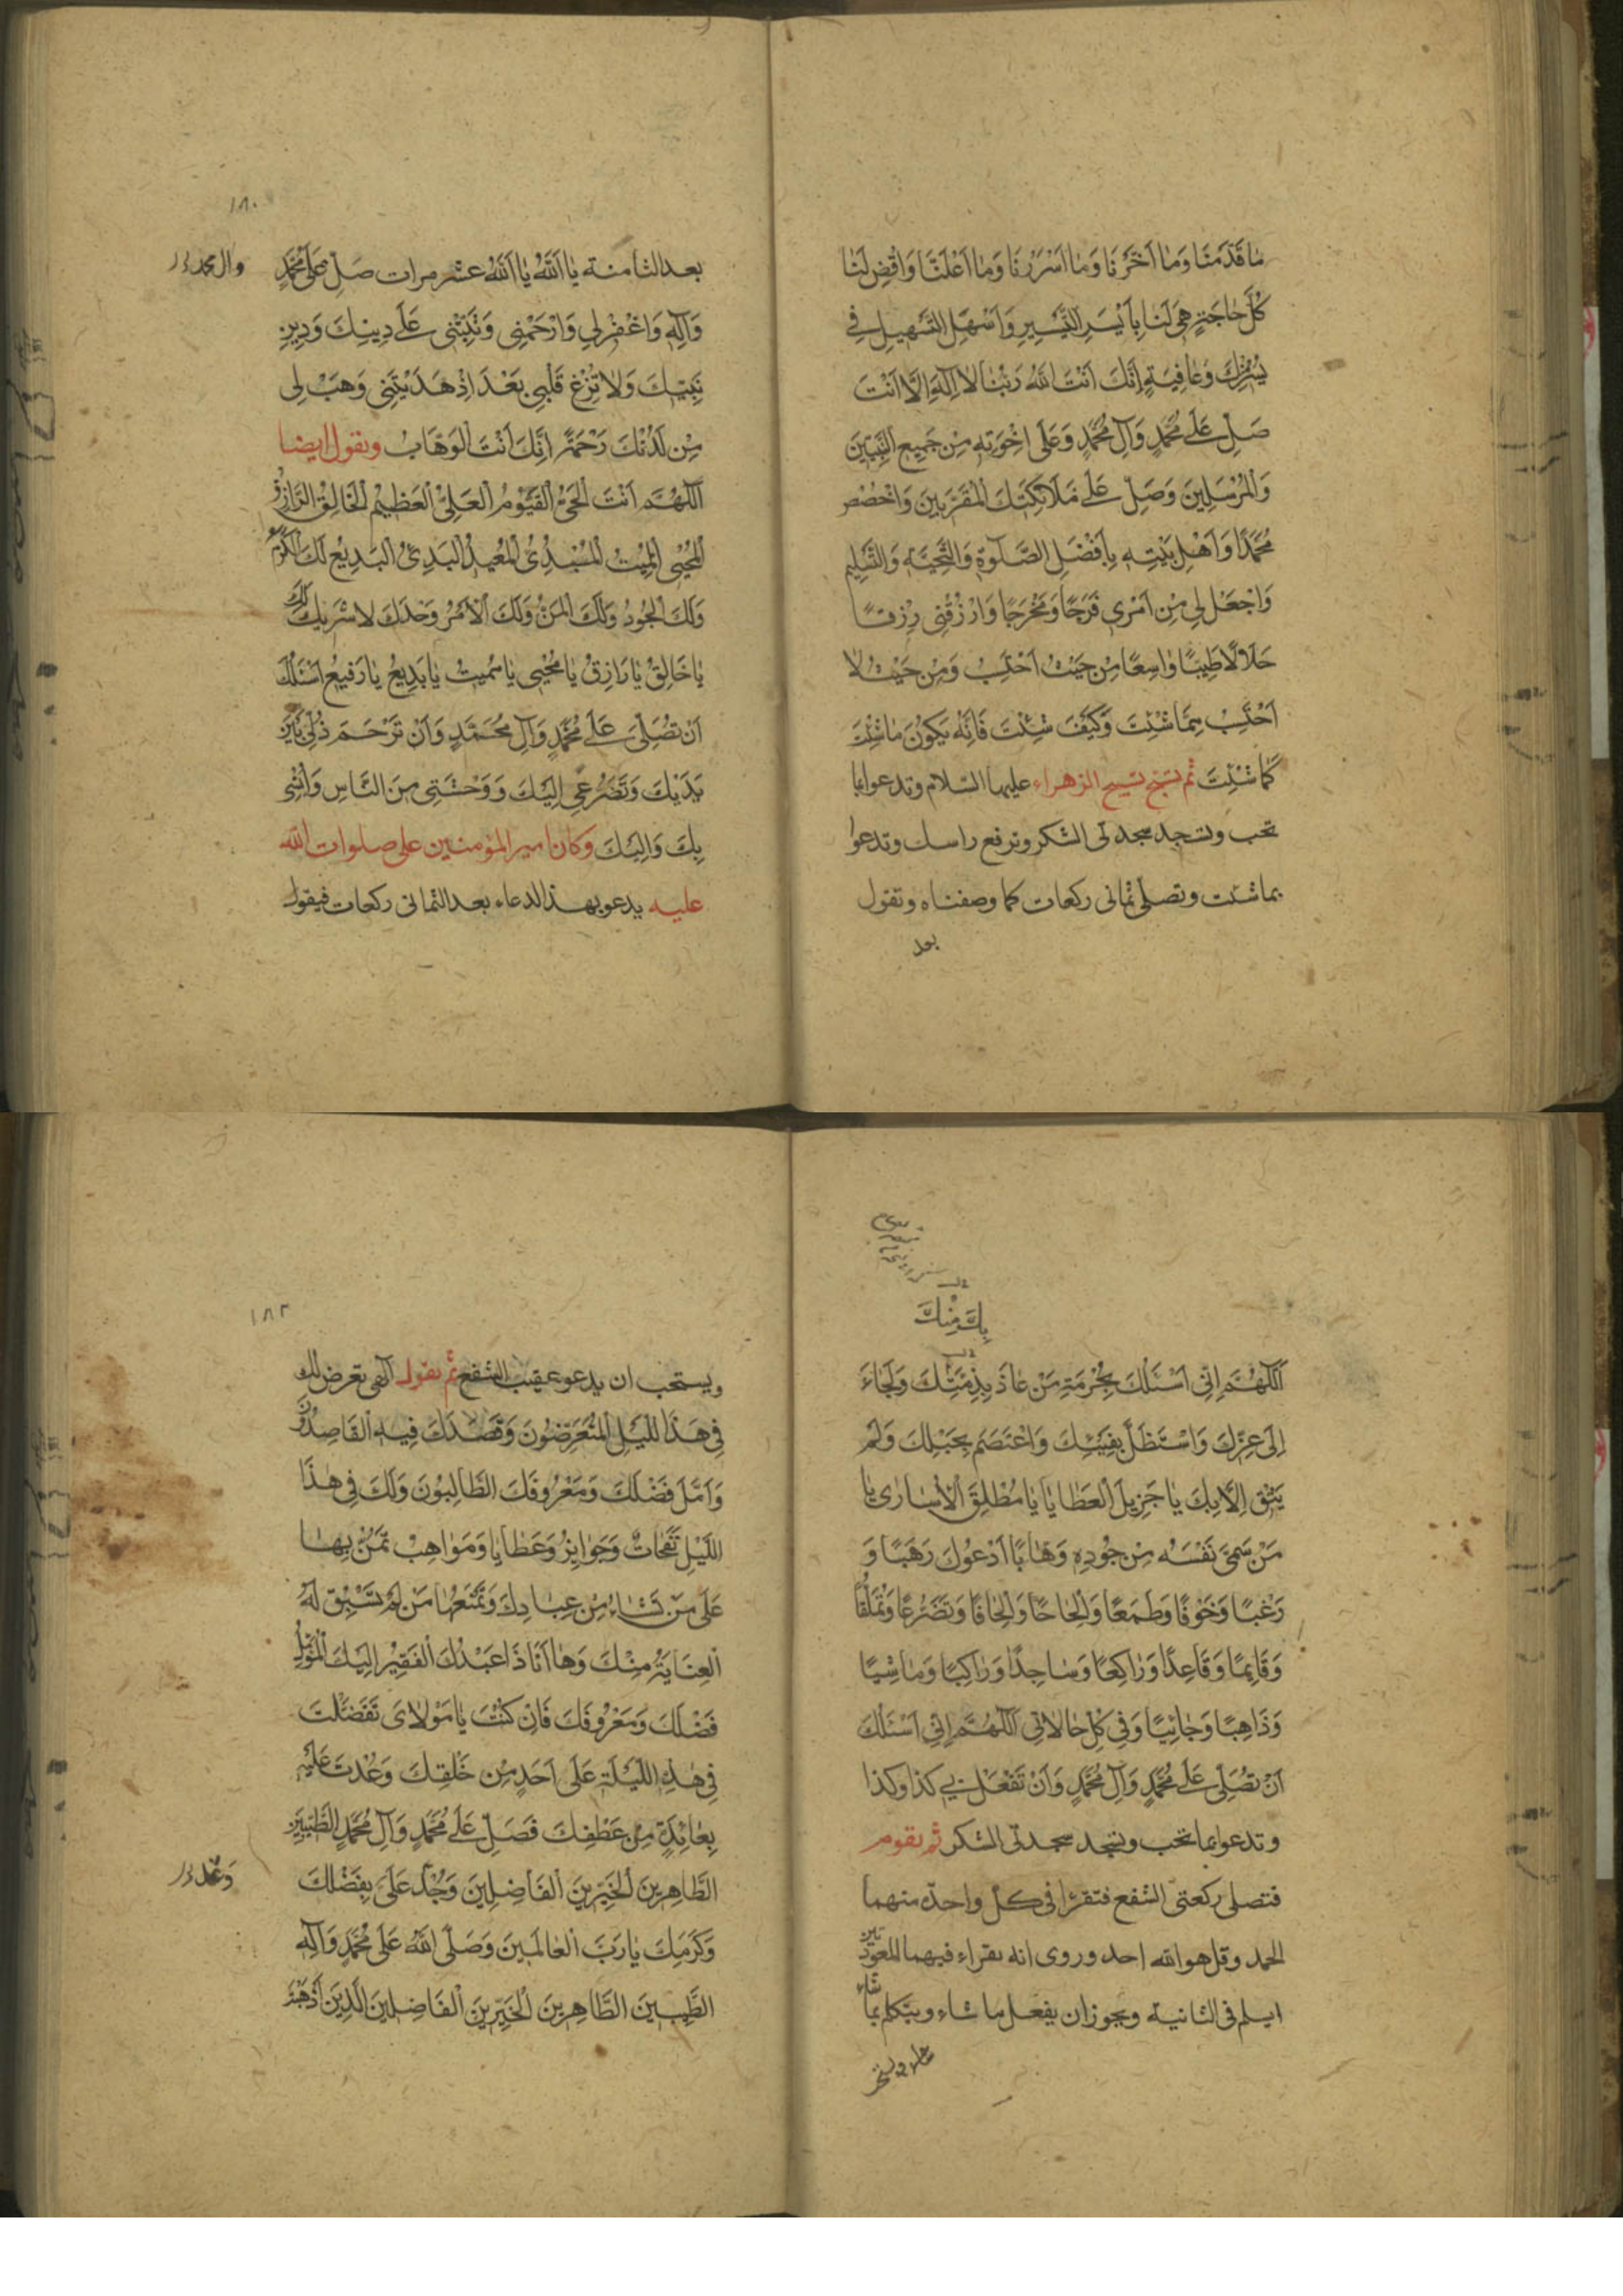 مٰا قَدَّمَنْا وَمٰا اَخَّرْنٰا وَمٰا اَسْرَرْنٰا وَمٰا اَعْلَنّٰا وَاقْضِ لَنٰا
كُلَّ حٰاجَةٍ هِىَ لَنٰا بِاَيْسَرِ التَّيْسِيرِ وَاَسْهَلِ التَّسْهِيلِ فِي
يُسْرٍ مِنْكَ وَعٰافِيَةٍ اِنَّكَ اَنْتَ اللهُ رَبُّنٰا لاٰ اِلٰهَ اِلاّٰ اَنْتَ
صَلِّ عَلٰى مُحَمَّدٍ وَآلِ مُحَمَّدٍ وَعَلٰى اِخْوَتِهِ مِنْ جَمِيعِ النَّبِيّينَ
وَالْمُرْسَلِينَ وَصَلِّ عَلٰى مَلاٰئِكَتِكَ الْمُقَرَّبِينَ وَاخْصُصْ
مُحَمَّدًا وَاَهْلَ بَيْتِهِ بِاَفْضَلِ الصَّلٰوةِ وَالتَّحِيَّةِ وَالتَّسْلِيمِ
وَاجْعَلْ لِى مِنْ اَمْرِى فَرَجًا وَمَخْرَجًا وَارْزُقْنِى رِزْقًا
حَلاٰلًا طَيِّبًا وٰاسِعًا مِنْ حَيْثُ اَحْتَسِبُ وَمِنْ حَيْثُ لاٰ
اَحْتَسِبُ مِمَّا شِئْتَ وَكَيْفَ شِئْتَ فَاِنَّهُ يَكُونُ مٰا شِئْتَ
كَمٰا شِئْتَ ثم تسبح تسبيح الزهراء عليها السلام وتدعوا بما
تحب وتسجد سجدتى الشكر وترفع راسك وتدعوا
بما شئت وتصلى ثمانى ركعات كما وصفناه وتقول
بعد
١٨٠
بعد الثامنة يٰا اَللهُ يٰا اَللهُ عشر مرات صَلِّ عَلٰى مُحَمَّدٍ
وال محمد
وَآلِهِ وَاغْفِرْ لِى وَارْحَمْنِى وَثَبِّتْنِى عَلٰى دِينِكَ وَدِينِ
نَبِيِّكَ وَلاٰ تُزِغْ قَلْبِى بَعْدَ اِذْ هَدَيْتَنِى وَهَبْ لِى
مِنْ لَدُنْكَ رَحْمَةً اِنَّكَ اَنْتَ الْوَهّٰابُ وتقول ايضا
اَللّٰهُمَّ اَنْتَ الْحَىُّ الْقَيُّومُ الْعَلِىُّ الْعَظِيمُ الْخَالِقُ الرَّازِقُ
الْمُحْيِى الْمُمِيتُ الْمُبْدِئُ الْمُعِيدُ الْبَدِئُ الْبَدِيعُ لَكَ الْكَرَمُ
وَلَكَ الْجُودُ وَلَكَ الْمَنُّ وَلَكَ الْاَمْرُ وَحْدَكَ لاٰ شَرِيكَ لَكَ
يٰا خَالِقُ يٰا رَازِقُ يٰا مُحْيِى يٰا مُمِيتُ يٰا بَدِيعُ يٰا رَفِيعُ اَسْئَلُكَ
اَنْ تُصَلِّىَ عَلٰى مُحَمَّدٍ وَآلِ مُحَمَّدٍ وَاَنْ تَرْحَمَ ذُلّىِ بَيْنَ
يَدَيْكَ وَتَضَرُّعِى اِلَيْكَ وَوَحْشَتِى مِنَ النّٰاسِ وَاُنْسِى
بِكَ وَاِلَيْكَ وكان امير المؤمنين على صلوات الله
عليه يدعو بهذ الدعاء بعد الثمانى ركعات فيقول
بِكَ مِنْكَ
اَللّٰهُمَّ اِنِّى اَسْئَلُكَ بِحُرْمَةِ مَنْ عٰاذَ بِذِمَّتِكَ وَلَجَاءَ
اِلٰى عِزِّكَ وَاسْتَظَلَّ بِفَيْئِكَ وَاعْتَصَمَ بِحَبْلِكَ وَلَمْ
يَثِقْ اِلاّٰ بِكَ يٰا جَزِيلَ الْعَطٰايٰا يٰا مُطْلِقَ الْاُسٰارٰى يٰا
مَنْ سَمّٰى نَفْسَهُ مِنْ جُودِهِ وَهّٰابًا اَدْعُوكَ رَهَبًا وَ
رَغَبًا وَخَوْفًا وَطَمَعًا وَاِلْحٰاحًا وَاِلْحٰافًا وَتَضَرُّعًا وَتَمَلُّقًا
وَقَايِمًا وَقَاعِدًا وَرٰاكِعًا وَسٰاجِدًا وَرٰاكِبًا وَمٰاشِيًا
وَذَاهِبًا وَجٰائِيًا وَفِى كُلِّ حٰالاٰتِى اَللّٰهُمَّ اِنِّى اَسْئَلُكَ
اَنْ تُصَلِّىَ عَلٰى مُحَمَّدٍ وَآلِ مُحَمَّدٍ وَاَنْ تَفْعَلَ بِى كذا وكذا
وتدعوا بما تحب وتسجد سجدتى الشكر ثم تقوم
فتصلى ركعتى الشفع فتقرا فى كل واحدة منهما
الحمد وقل هو الله احد وروى انه يقراء فيهما المعوذتين
ايسلم فى الثانية ويجوز ان يفعل ما شاء ويتكلم بما شاء
١٨٢
ويستحب ان يدعو عقيب الشفع ثم يقول الهى تعرض لك
فِى هَذَا اللَّيْلِ الْمُتَعَرِّضُونَ وَقَصَدَكَ فِيهِ الْقَاصِدُونَ
وَاَمَّلَ فَضْلَكَ وَمَعْرُوفَكَ الطَّالِبُونَ وَلَكَ فِى هٰذَا
اللَّيْلِ نَفَحٰاتٌ وَجَوٰايِزُ وَعَطٰايٰا وَمَوٰاهِبُ تَمُنُّ بِهٰا
عَلٰى مَنْ تَشٰاءُ مِنْ عِبٰادِكَ وَتَمْنَعُهٰا مَنْ لَمْ تَسْبِقْ لَهُ
الْعِنَايَةُ مِنْكَ وَهٰا اَنَا ذَا عَبْدُكَ الْفَقِيرُ اِلَيْكَ الْمُؤَمِّلُ
فَضْلَكَ وَمَعْرُوفَكَ فَاِنْ كُنْتَ يٰا مَوْلاٰىَ تَفَضَّلْتَ
فِى هٰذِهِ اللَّيْلَةِ عَلٰى اَحَدٍ مِنْ خَلْقِكَ وَعُدْتَ عَلَيْهِ
بِعٰائِدَةٍ مِنْ عَطْفِكَ فَصَلِّ عَلٰى مُحَمَّدٍ وَآلِ مُحَمَّدٍ الطَّيِّبِينَ
الطَّاهِرِينَ الْخَيِّرِينَ الْفَاضِلِينَ وَجُدْ عَلَىَّ بِفَضْلِكَ
وَكَرَمِكَ يٰا رَبَّ الْعٰالَمِينَ وَصَلَّى اللهُ عَلٰى مُحَمَّدٍ وَآلِهِ
الطَّيِّبِينَ الطَّاهِرِينَ الْخَيِّرِينَ الْفَاضِلِينَ الَّذِينَ اَذْهَبْتَ